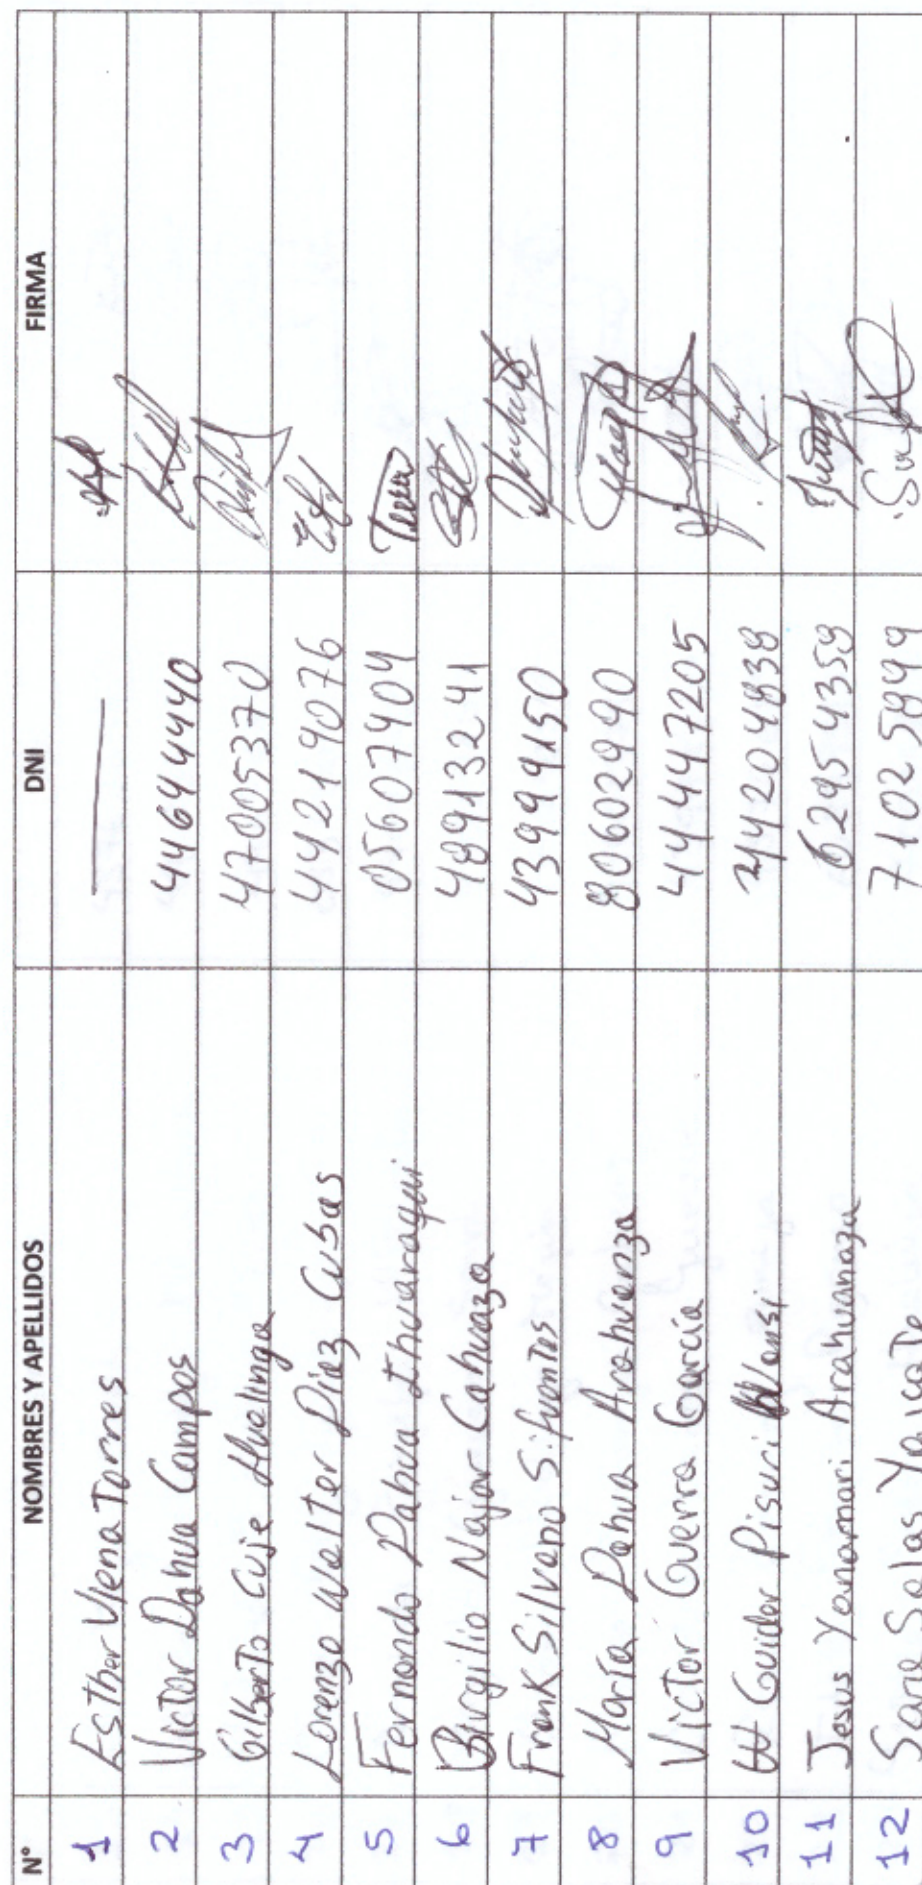 N° NOMBRES Y APELLIDOS DNI FIRMA
1 Esther Viena Torres ———
2 Victor Dahua Campos 44644440
3 Gilberto Cuje Hualinga 47005370
4 Lorenzo Walter Díaz Cubas 44219076
5 Fernando Dahua Ihuaraqui 05607404
6 Birgilio Najar Cahuaza 48913241
7 Frank Silvano Sifuentes 43999150
8 María Dahua Arahuanza 80602990
9 Victor Guerra García 44447205
10 Guider Pisuri 44204838
11 Jesus Yanamari Arahuanaza 62954359
12 Salas 71025899